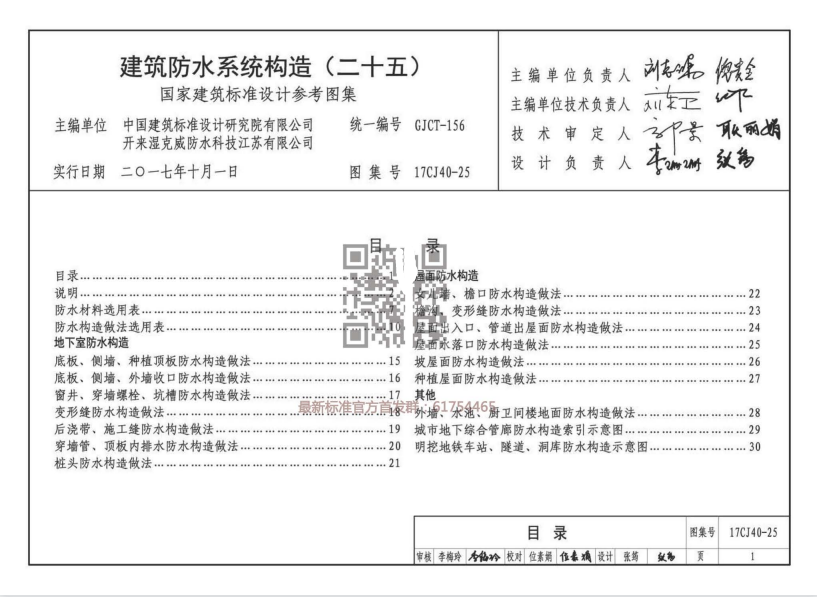 建筑防水系统构造（二十五）
国家建筑标准设计参考图集
主编单位 中国建筑标准设计研究院有限公司
开来湿克威防水科技江苏有限公司
统一编号 GJCT-156
实行日期 二〇一七年十月一日
图集号 17CJ40-25
主编单位负责人
主编单位技术负责人
技术审定人
设计负责人
目 录
目录……………………1
说明……………………2
防水材料选用表……………………7
防水构造做法选用表……………………10
地下室防水构造
底板、侧墙、种植顶板防水构造做法……………………15
底板、侧墙、外墙收口防水构造做法……………………16
窗井、穿墙螺栓、坑槽防水构造做法……………………17
变形缝防水构造做法……………………18
后浇带、施工缝防水构造做法……………………19
穿墙管、顶板内排水防水构造做法……………………20
桩头防水构造做法……………………21
屋面防水构造
女儿墙、檐口防水构造做法……………………22
檐沟、变形缝防水构造做法……………………23
屋面出入口、管道出屋面防水构造做法……………………24
屋面水落口防水构造做法……………………25
坡屋面防水构造做法……………………26
种植屋面防水构造做法……………………27
其他
外墙、水池、厨卫间楼地面防水构造做法……………………28
城市地下综合管廊防水构造索引示意图……………………29
明挖地铁车站、隧道、洞库防水构造示意图……………………30
最新标准官方首发群：61754465
目 录
图集号 17CJ40-25
审核 李梅玲 校对 位素娟 设计 张筠 页 1